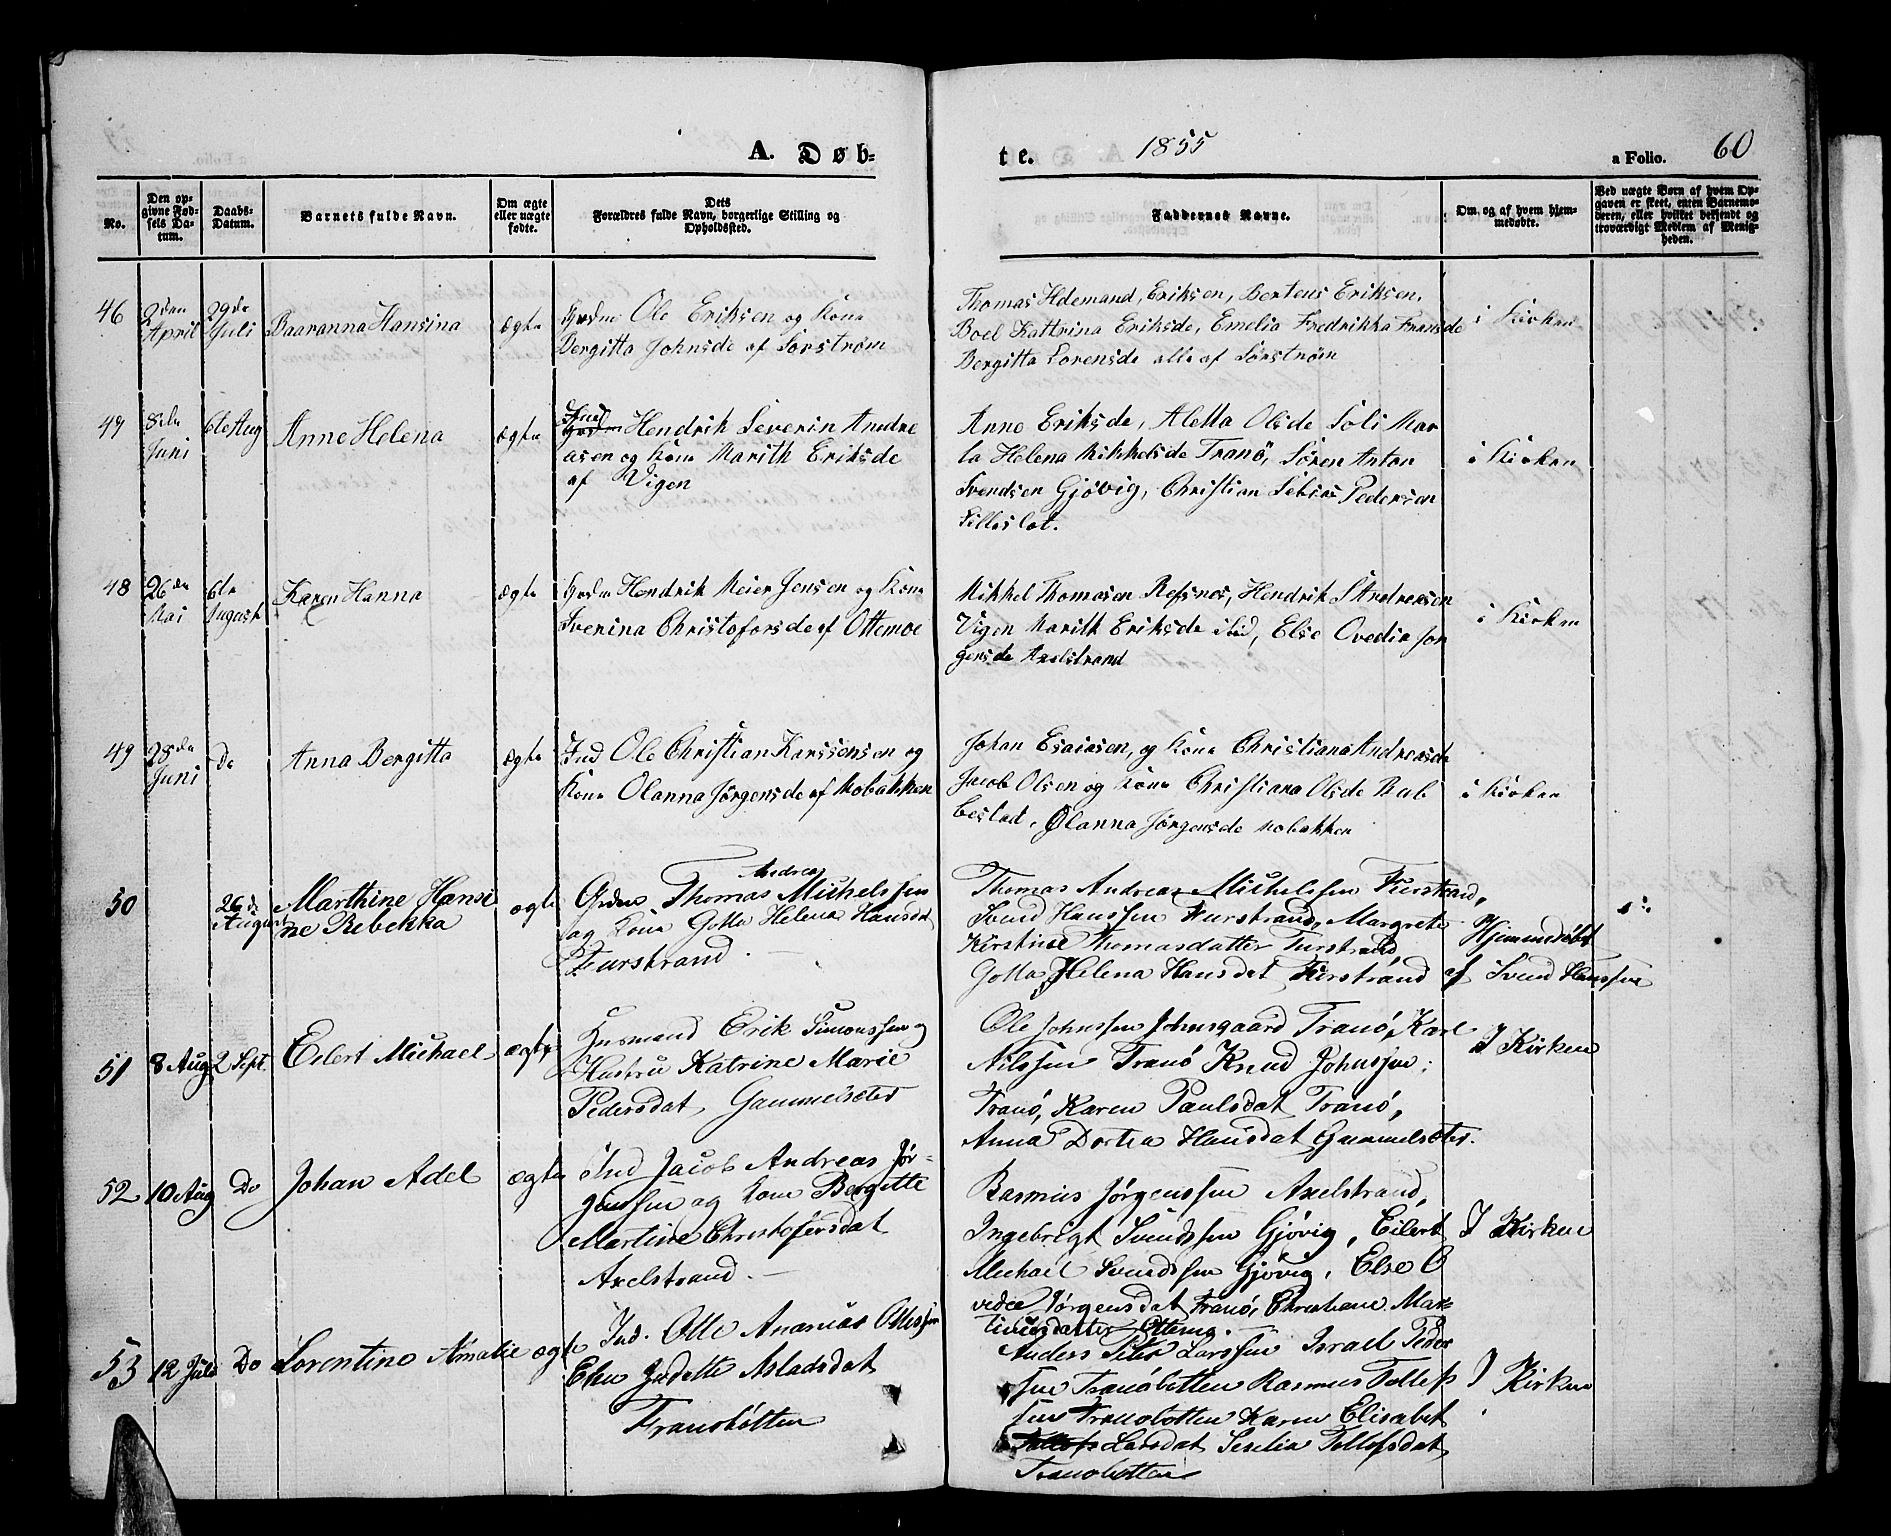 A. Døb-
te.
1855
a Folio.
60
No.
Den op-
givne Fød-
sels Da-
tum.
Daabs-
Datum.
Barnets fulde Navn.
Om ægte
eller uægte
fødte.
Dets
Forældres fulde Navn, borgerlige Stilling og
Opholdssted.
Faddernes Navne.
Om og af hvem hjem-
medøbte.
Ved uægte Børn af hvem Op-
gaven er skeet, enten Barnemo-
deren, eller hvilket bekjendt og
troværdigt Medlem af Menig-
heden.
46
2den
April
29de
Juli
Baaranna Hansina
ægte
Grdm Ole Eriksen og Kone
Bergitta Johnsde af Sørstrøm
Thomas Hdemand, Eriksen, Berteus Eriksen,
Boel Kattrina Eriksde, Emelia Fredrikka Fransde
Bergitta Lorensde alle af Sørstrøm
i Kirken
47
8de
Juni
6te Aug
Anne Helena
ægte
Ind
Hendrik Severin Andre
asen og Kone Marith Eriksde
af Vigen
Anne Eriksde, Aletta Olsde Soli Mar
ta Helena Mikkelsde Tranö, Sören Anton
Svendsen Gjövig, Christian Pedersen
i Kirken
48
26de
Mai
6te
August
Karen Hanna
ægte
Grdm Hendrik Meier Jensen og Kone
Sverina Christofersde af Ottemoe
Mikkel Thomasen Refsnes, Hendrik S Andreasen
Vigen Marith Eriksde ibid, Else Ovedia Jør
gensde Axelstrand
i Kirken
49
28de
Juni
Do
Anna Bergitta
ægte
Ind Ole Christian Karssensen og
Kone Olanna Jørgensde af Mobakken
Johan Esaiasen, og Kone Christiana Andreasde
Jacob Olsen og Kone Christiana Olsde Rab
beslad, Olanna Jørgensde Mobakken
i Kirken
50
26de
August
Marthine Hansi
ne Rebekka
ægte
Andreas
Grdm Thomas Michelssen
og Kone Gotta Helena Hansdat
Furstrand
Thomas Andreas Michelssen Furstrand,
Svend Hanssen Furstrand, Margrete
Kirstine Thomasdatter Furstrand
Gotta Helena Hansdat Furstrand
Hjemmedøbt
af Svend Hanssen
51
8 Aug
2 Sept.
Eilert Michael
ægte
Husmand Erik Simonssen og
Hustru Katrine Marie
Pedersdat, Gammelseter
Ole Johnssen Johnsgaard Tranö, Karl
Nilssen Tranö Knud Johnssen
Tranö, Karen Paulsdat Tranö,
Anna Dortea Hansdat Gammelseter.
I Kirken
52
10 Aug
Do
Johan Adel
ægte
Ind Jacob Andreas Jør-
genssen og Kone Bergitte
Martine Christofersdat
Axelstrand
Rasmus Jørgenssen Axelstrand,
Ingebrigt Svendssen Gjövig, Eilert
Michael Svendssen Gjövig, Else O
vidie Jørgensdat Tranö, Christiane Mar-
tinusdatter
I Kirken
53
12 Juli
Do
Lorentine Amalie
ægte
Ind. Olle Ananias Ollessen
Elen Judette Asladsdat
Tranöbotten
Anders Peter Larssen Israel Peder
sen Tranöbotten Rasmus Tollefs
sen Tranobotten Karen Elisabet
Larsdat, Seselia Tollefsdat
Tranobotten
I Kirken